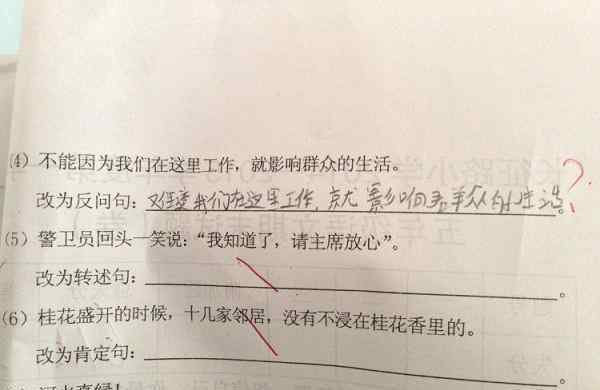 (4) 不能因为我们在这里工作，就影响群众的生活。
改为反问句：我们在这里工作，就影响群众的生活？。
(5) 警卫员回头一笑说：“我知道了，请主席放心”。
改为转述句：。
(6) 桂花盛开的时候，十几家邻居，没有不浸在桂花香里的。
改为肯定句：。